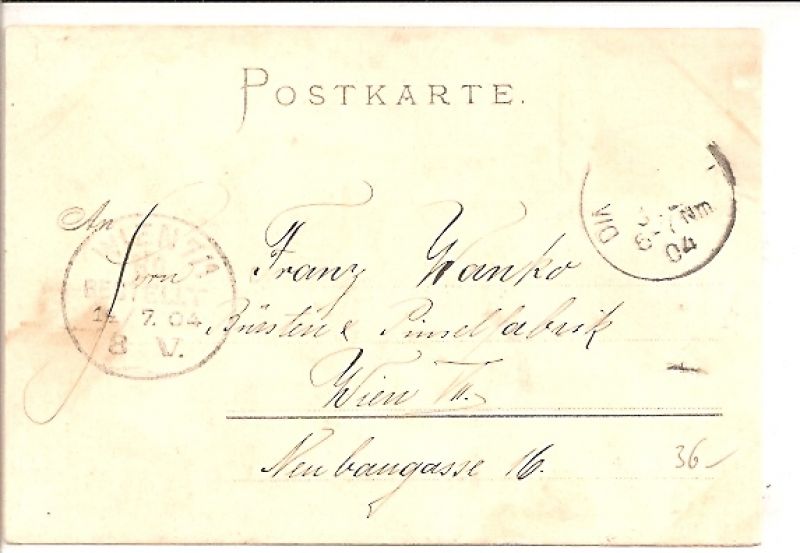 POSTKARTE.
An
Herrn Franz Wanko
Bürsten & Pinselfabrik
Wien VII.
Neubaugasse 16.
36-
WIEN 7/1
BESTELLT
14 7. 04
8 V.
6-7 Nm
04